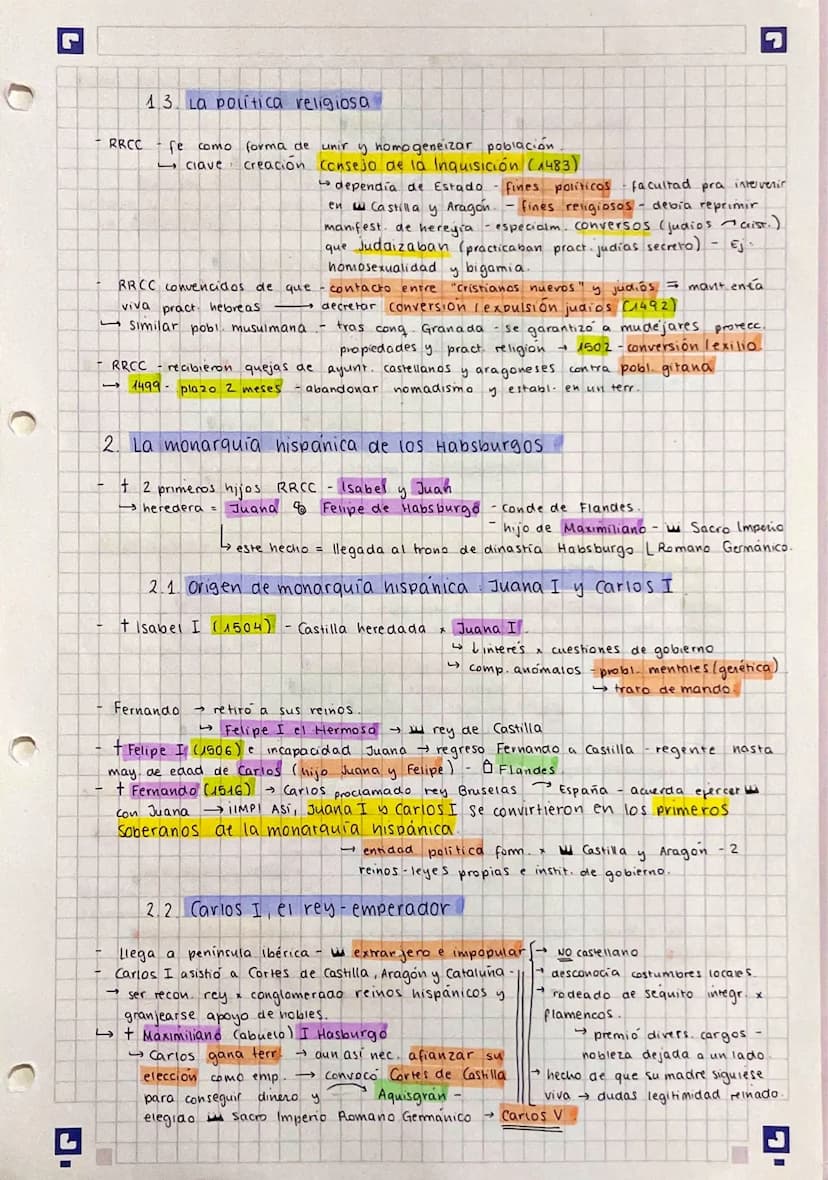 1.3. La política religiosa
- RRCC - fe como forma de unir y homogeneizar población.
↳ clave: creación Consejo de la Inquisición (1483)
↳ dependía de Estado - fines políticos - facultad pra intervenir
en Castilla y Aragón. - fines religiosos - debía reprimir
manifest. de herejía - especialm. conversos (judíos → crist.)
que judaizaban (practicaban pract. judías secreto) - Ej:
homosexualidad y bigamia.
- RRCC convencidos de que - contacto entre "cristianos nuevos" y judíos = mantenía
viva pract. hebreas → decretar conversión/expulsión judíos (1492)
↳ Similar pobl. musulmana - tras conq. Granada - se garantizó a mudéjares protecc.
propiedades y pract. religión → 1502 - conversión/exilio.
- RRCC - recibieron quejas de ayunt. castellanos y aragoneses contra pobl. gitana
→ 1499 - plazo 2 meses - abandonar nomadismo y establ. en un terr.
2. La monarquía hispánica de los Habsburgos
- † 2 primeros hijos RRCC - Isabel y Juan
→ heredera = Juana Felipe de Habsburgo - conde de Flandes.
- hijo de Maximiliano - Sacro Imperio
↳ este hecho = llegada al trono de dinastía Habsburgo Romano Germánico.
2.1. Origen de monarquía hispánica: Juana I y Carlos I
- † Isabel I (1504) - Castilla heredada x Juana I.
↳ ↓ interés x cuestiones de gobierno
↳ comp. anómalos - probl. mentales (genética)
→ trato de mando.
- Fernando → retiró a sus reinos.
↳ Felipe I el Hermoso → rey de Castilla
- † Felipe I (1506) e incapacidad Juana → regreso Fernando a Castilla - regente hasta
may. de edad de Carlos (hijo Juana y Felipe) - Flandes.
- † Fernando (1516) → Carlos proclamado rey Bruselas → España - acuerda ejercer
con Juana → ¡IMP! Así, Juana I y Carlos I se convirtieron en los primeros
soberanos de la monarquía hispánica.
→ entidad política form. x Castilla y Aragón - 2
reinos - leyes propias e instit. de gobierno.
2.2. Carlos I, el rey-emperador
- Llega a península ibérica - extranjero e impopular → NO castellano
- Carlos I asistió a Cortes de Castilla, Aragón y Cataluña - → desconocía costumbres locales.
→ ser recon. rey x conglomerado reinos hispánicos y → rodeado de séquito integr. x
granjearse apoyo de nobles. flamencos.
↳ † Maximiliano (abuelo) I Hasburgo → premió divers. cargos -
↳ Carlos gana terr. → aun así nec. afianzar su nobleza dejada a un lado.
elección como emp. → convocó Cortes de Castilla → hecho de que su madre siguiese
para conseguir dinero y Aquisgrán - viva → dudas legitimidad reinado.
elegido Sacro Imperio Romano Germánico → Carlos V